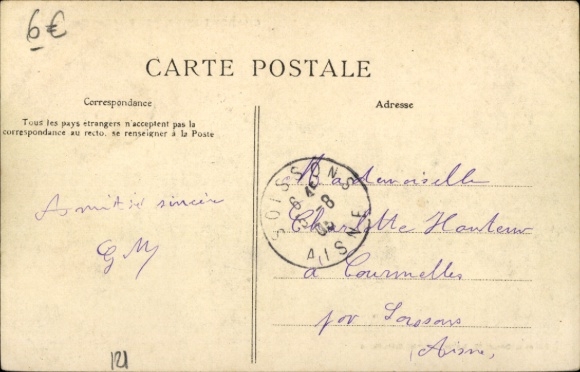 6€
CARTE POSTALE
Correspondance
Adresse
Tous les pays étrangers n'acceptent pas la
correspondance au recto, se renseigner à la Poste
Amitié sincère
G M
SOISSONS
AISNE
Mademoiselle
Charlotte
à Courmelles
par Soissons
(Aisne)
121